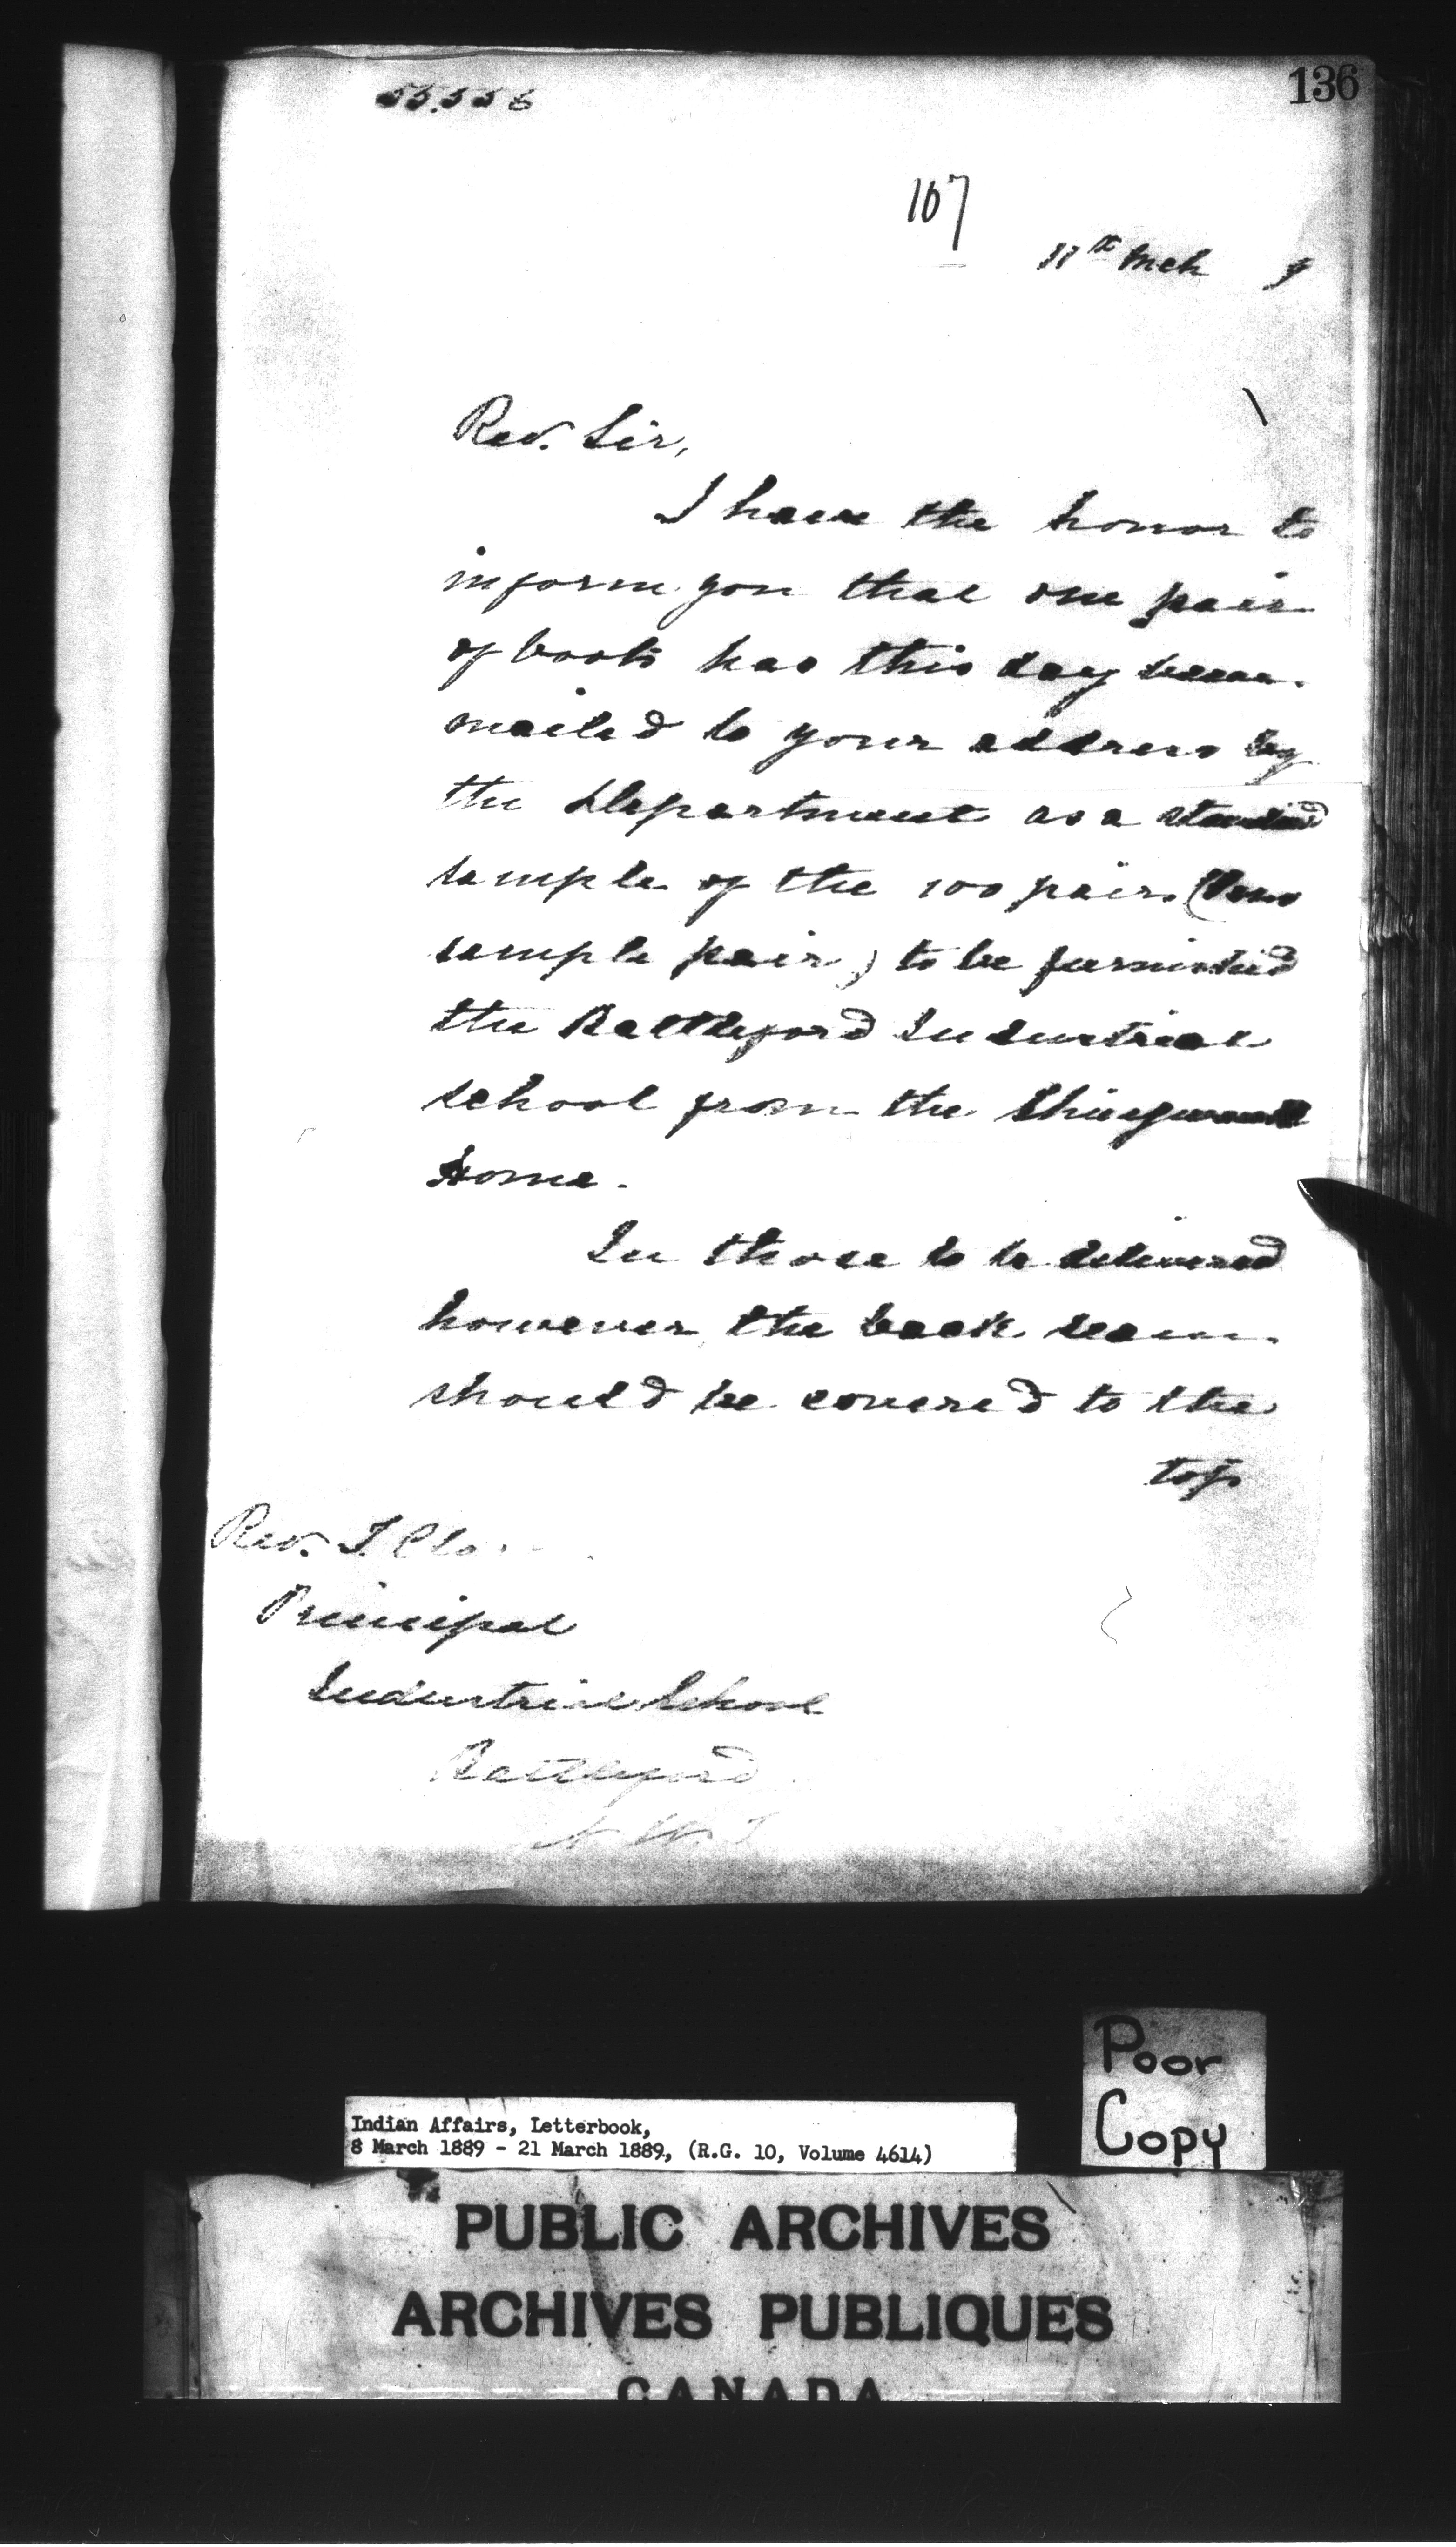 55.556
136
107
11th Mch 9
Rev. Sir,
I have the honor to
inform you that one pair
of boots has this day been
mailed to your address by
the Department as a
sample of the 100 pairs (less
sample pair) to be furnished
the Battleford Industrial
school from the Shingwauk
Home.
In those to be delivered
however the back seam
should be covered to the
top
Rev. T. Cla
Principal
Industrial School
Battleford
N.W.T
Poor
Copy
Indian Affairs, Letterbook,
8 March 1889 - 21 March 1889, (R.G. 10, Volume 4614)
PUBLIC ARCHIVES
ARCHIVES PUBLIQUES
CANADA